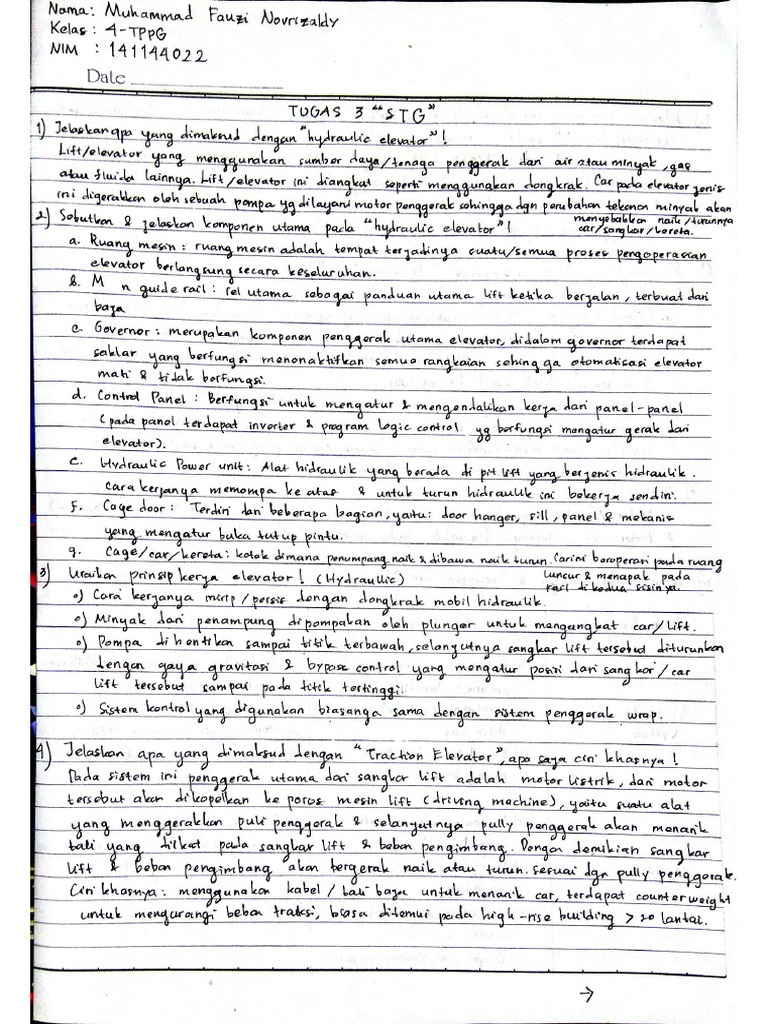 Nama: Muhammad Fauzi Novrizaldy
Kelas: 4-TPPG
NIM : 141144022
Date
TUGAS 3 "STG"
1) Jelaskan apa yang dimaksud dengan "hydraulic elevator"!
Lift/elevator yang menggunakan sumber daya/tenaga penggerak dari air atau minyak, gas
atau fluida lainnya. Lift/elevator ini diangkat seperti menggunakan dongkrak. Car pada elevator jenis
ini digerakkan oleh sebuah pompa yg dilayani motor penggerak sehingga dgn perubahan tekanan minyak akan
menyebabkan naik/turunnya
car/sangkar/kereta.
2) Sebutkan & jelaskan komponen utama pada "hydraulic elevator"!
a. Ruang mesin : ruang mesin adalah tempat terjadinya suatu/semua proses pengoperasian
elevator berlangsung secara keseluruhan.
b. M n guide rail : rel utama sebagai panduan utama lift ketika berjalan, terbuat dari
baja
c. Governor : merupakan komponen penggerak utama elevator, didalam governor terdapat
saklar yang berfungsi menonaktifkan semua rangkaian sehingga otomatisasi elevator
mati & tidak berfungsi.
d. Control Panel : Berfungsi untuk mengatur & mengendalikan kerja dari panel-panel
(pada panel terdapat inverter & program logic control yg berfungsi mengatur gerak dari
elevator).
e. Hydraulic Power unit : Alat hidraulik yang berada di pit lift yang berjenis hidraulik.
cara kerjanya memompa ke atas & untuk turun hidraulik ini bekerja sendiri.
f. Cage door : Terdiri dari beberapa bagian, yaitu: door hanger, sill, panel & mekanis
yang mengatur buka tutup pintu.
g. Cage/car/kereta : kotak dimana penumpang naik & dibawa naik turun. Car ini beroperasi pada ruang
luncur & menapak pada
rail di kedua sisinya.
3) Uraikan prinsip kerja elevator! (Hydraulic)
o) Cara kerjanya mirip/persis dengan dongkrak mobil hidraulik.
o) Minyak dari penampung dipompakan oleh plunger untuk mengangkat car/lift.
o) Pompa dihentikan sampai titik terbawah, selanjutnya sangkar lift tersebut diturunkan
dengan gaya gravitasi & bypass control yang mengatur posisi dari sangkar/car
lift tersebut sampai pada titik tertinggi.
o) Sistem kontrol yang digunakan biasanya sama dengan sistem penggerak wrap.
4) Jelaskan apa yang dimaksud dengan "Traction Elevator", apa saja ciri khasnya!
Pada sistem ini penggerak utama dari sangkar lift adalah motor listrik, dari motor
tersebut akan dikopelkan ke poros mesin lift (driving machine), yaitu suatu alat
yang menggerakkan puli penggerak & selanjutnya pully penggerak akan menarik
tali yang diikat pada sangkar lift & beban pengimbang. Dengan demikian sangkar
lift & beban pengimbang akan bergerak naik atau turun sesuai dgn pully penggerak.
Ciri khasnya : menggunakan kabel/tali baja untuk menarik car, terdapat counterweight
untuk mengurangi beban traksi, biasa ditemui pada high-rise building > 20 lantai.
→